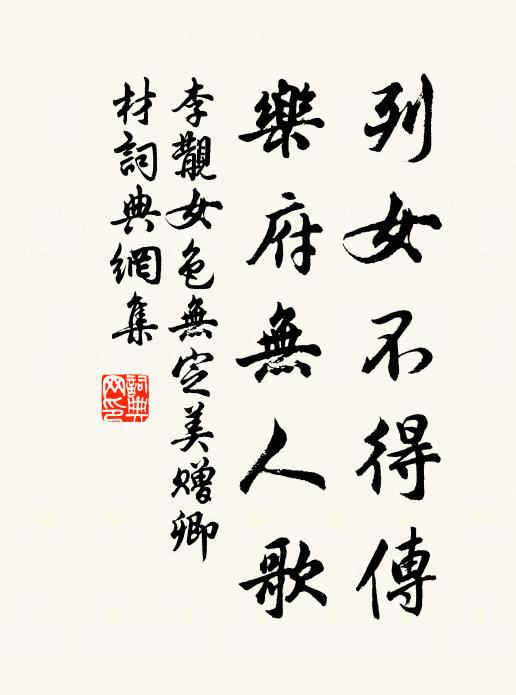 列女不得傳
樂府無人歌
李覯女色無定美贈卿
材詞典網集
詞典网印